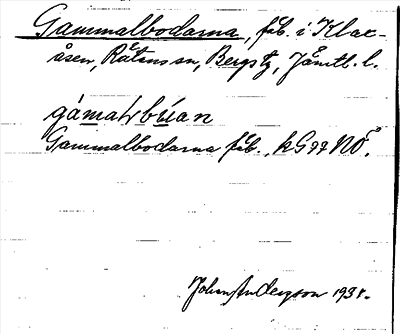 Gammalbodarna, fäb. i Klax-
åsen, Rätans sn, Bergs tg, Jämtl. l.
Gammalbodarna fäb., kG77NÖ.
John Andersson 1931.